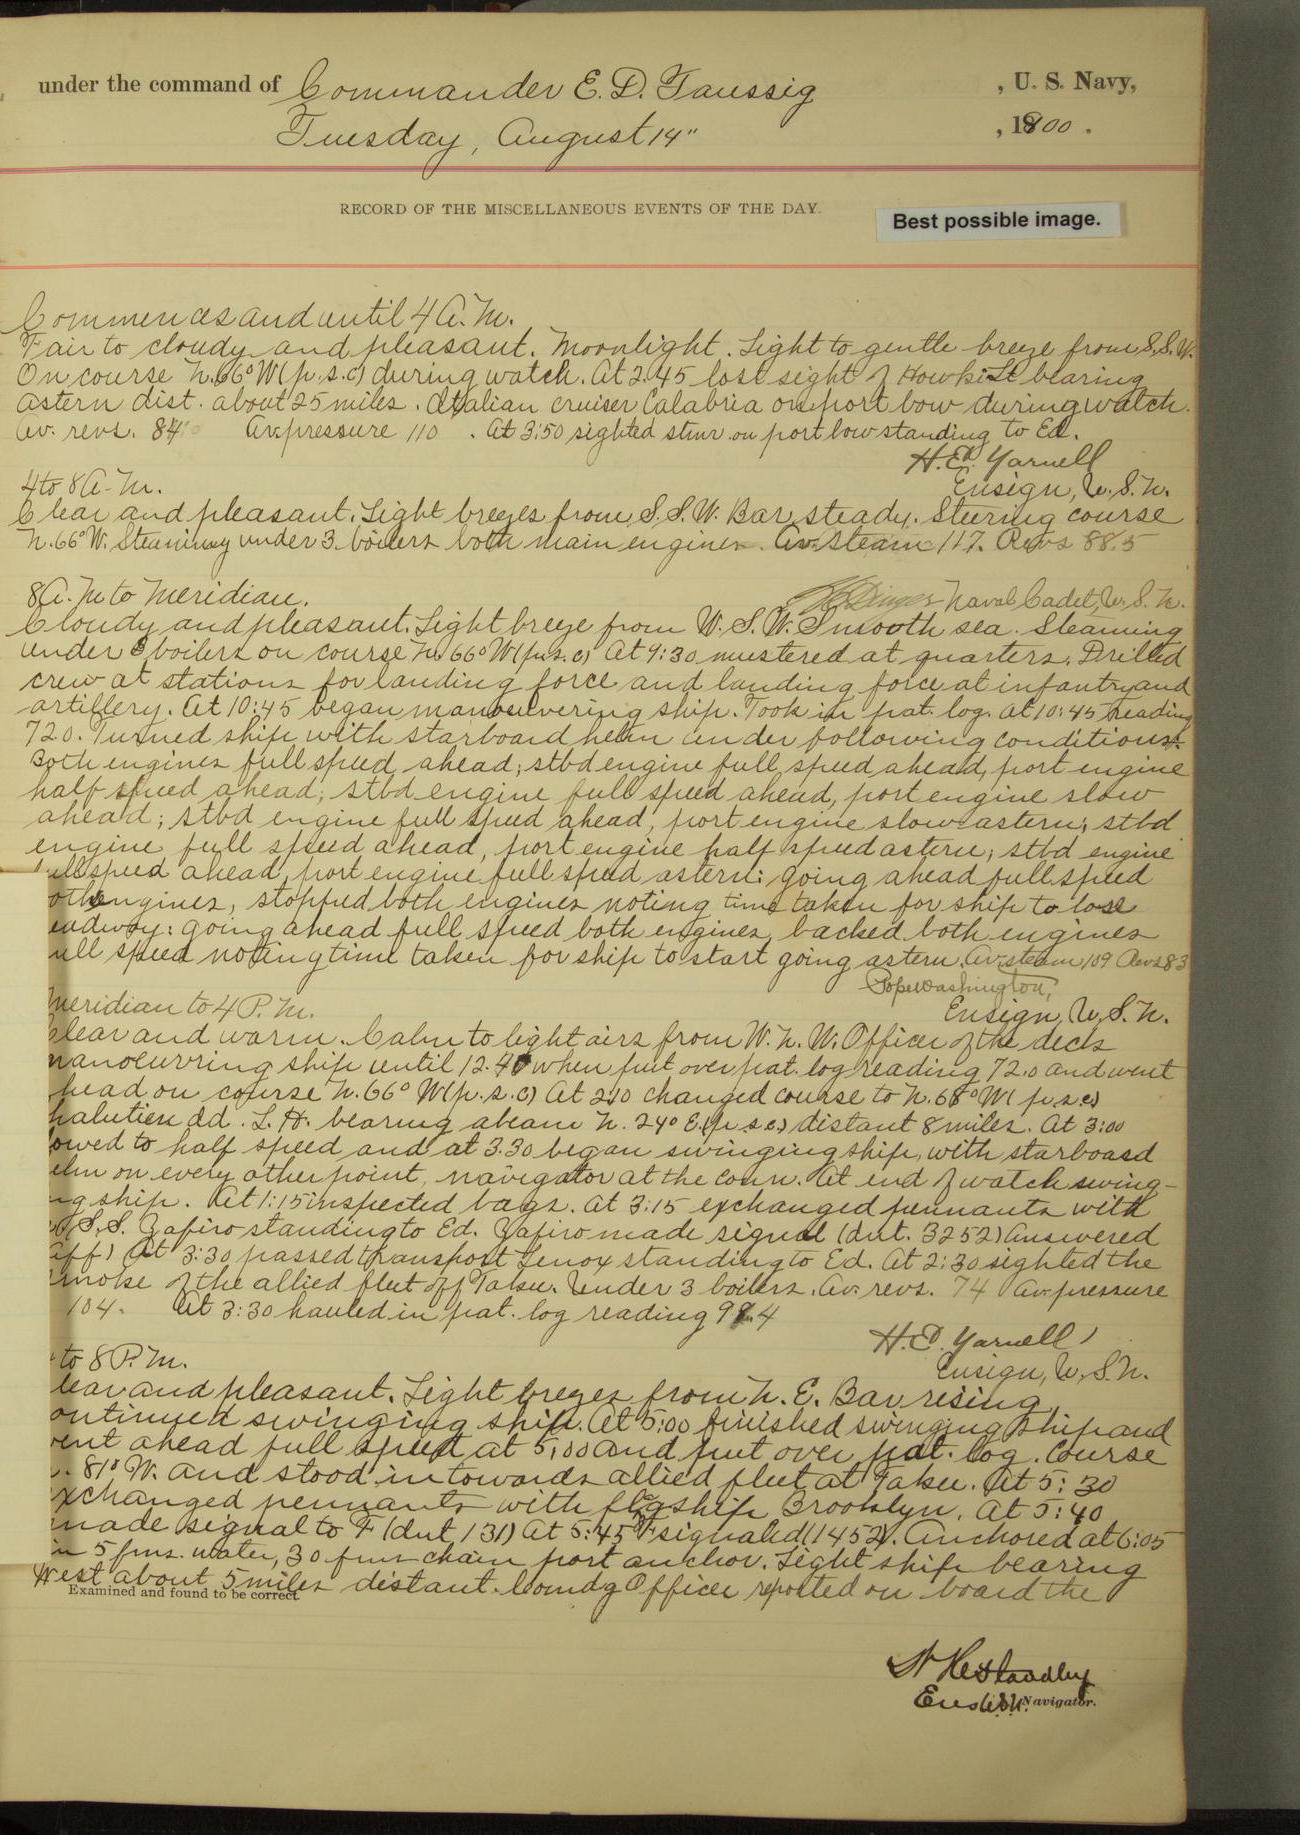 under the command of Commander E. D. Taussig , U. S. Navy,
Tuesday, August 14" , 1900 .
RECORD OF THE MISCELLANEOUS EVENTS OF THE DAY.
Best possible image.
Commences and until 4 A. M.
Fair to cloudy and pleasant. Moonlight. Light to gentle breeze from S.S.W.
On course N.66°W (p.s.c) during watch. At 2.45 lost sight of Howki Lt bearing
astern dist. about 25 miles. Italian cruiser Calabria on port bow during watch.
Av. revs. 84 Av. pressure 110 . At 3:50 sighted stmr on port bow standing to Ed.
H. E. Yarnell
Ensign, U. S. N.
4 to 8 A. M.
Clear and pleasant. Light breezes from S. S. W. Bar steady. Steering course
N. 66° W. Steaming under 3 boilers both main engines. Av. Steam 117. Revs 88.5
Dinger Naval Cadet, U. S. N.
8 A. M to Meridian.
Cloudy and pleasant. Light breeze from W. S. W. Smooth sea. Steaming
under 3 boilers on course N. 66° W (p.s.c) At 9:30 mustered at quarters. Drilled
crew at stations for landing force and landing force at infantry and
artillery. At 10:45 began manoeuvering ship. Took in pat. log. at 10:45 reading
72.0. Turned ship with starboard helm under following conditions:
Both engines full speed ahead; stbd engine full speed ahead, port engine
half speed ahead; stbd engine full speed ahead, port engine slow
ahead; stbd engine full speed ahead, port engine slow astern; stbd
engine full speed ahead, port engine half speed astern; stbd engine
ull speed ahead, port engine full speed astern: going ahead full speed
oth engines, stopped both engines noting time taken for ship to lose
eadway: going ahead full speed both engines, backed both engines
ull speed noting time taken for ship to start going astern. Av. steam 109 Revs 83
Pope Washington,
Ensign, U. S. N.
Meridian to 4 P. M.
lear and warm. Calm to light airs from W. N. W. Officer of the deck
manoeuvring ship until 12.40 when put over pat. log reading 72.0 and went
head on course N. 66° W (p.s.c) At 2.10 changed course to N. 68° W (p.s.c)
halutien dd. L. H. bearing abeam N. 24° E. (p.s.c.) distant 8 miles. At 3:00
owed to half speed and at 3.30 began swinging ship, with starboard
elm on every other point, navigator at the conn. At end of watch swing-
ng ship. At 1:15 inspected bags. At 3:15 exchanged pennants with
S. S. Zafiro standing to Ed. Zafiro made signal (dnt. 3252) Answered
aff) At 3:30 passed transport Lenox standing to Ed. At 2:30 sighted the
smoke of the allied fleet off Taku. Under 3 boilers. Av. revs. 74 Av. pressure
104. At 3:30 hauled in pat. log reading 98.4
H. E. Yarnell
Ensign, U. S. N.
to 8 P. M.
lear and pleasant. Light breezes from N. E. Bar rising.
ontinued swinging ship. At 5:00 finished swinging ship and
went ahead full speed at 5,00 and put over pat. log. Course
. 81° W. and stood in towards allied fleet at Taku. At 5:30
xchanged pennants with flagship Brooklyn. At 5:40
made signal to F (dnt 131) At 5:45 F signaled (1452). Anchored at 6:05
in 5 fms. water, 30 fms chain port anchor. Light ship bearing
West about 5 miles distant. Comdg Officer reported on board the
Examined and found to be correct.
W H Standley
Ens. U.S.N. Navigator.